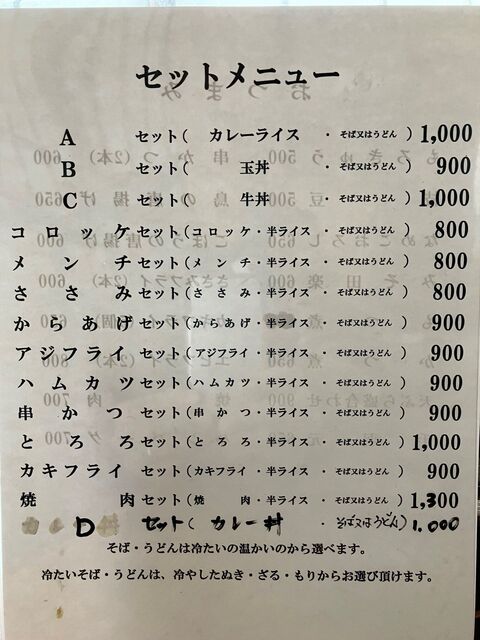 セットメニュー
A セット( カレーライス ・ そば又はうどん ) 1,000
B セット( 玉丼 ・ そば又はうどん ) 900
C セット( 牛丼 ・ そば又はうどん ) 1,000
コロッケセット(コロッケ・半ライス ・ そば又はうどん ) 800
メンチセット(メンチ・半ライス ・ そば又はうどん ) 800
ささみセット(ささみ・半ライス ・ そば又はうどん ) 800
からあげセット(からあげ・半ライス ・ そば又はうどん ) 900
アジフライセット(アジフライ・半ライス ・ そば又はうどん ) 900
ハムカツセット(ハムカツ・半ライス ・ そば又はうどん ) 900
串かつセット(串かつ・半ライス ・ そば又はうどん ) 900
とろろセット(とろろ・半ライス ・ そば又はうどん ) 1,000
カキフライセット(カキフライ・半ライス ・ そば又はうどん ) 900
焼肉セット(焼肉・半ライス ・ そば又はうどん ) 1,300
D セット( カレー丼 ・ そば又はうどん) 1,000
そば・うどんは冷たいの温かいのから選べます。
冷たいそば・うどんは、冷やしたぬき・ざる・もりからお選び頂けます。